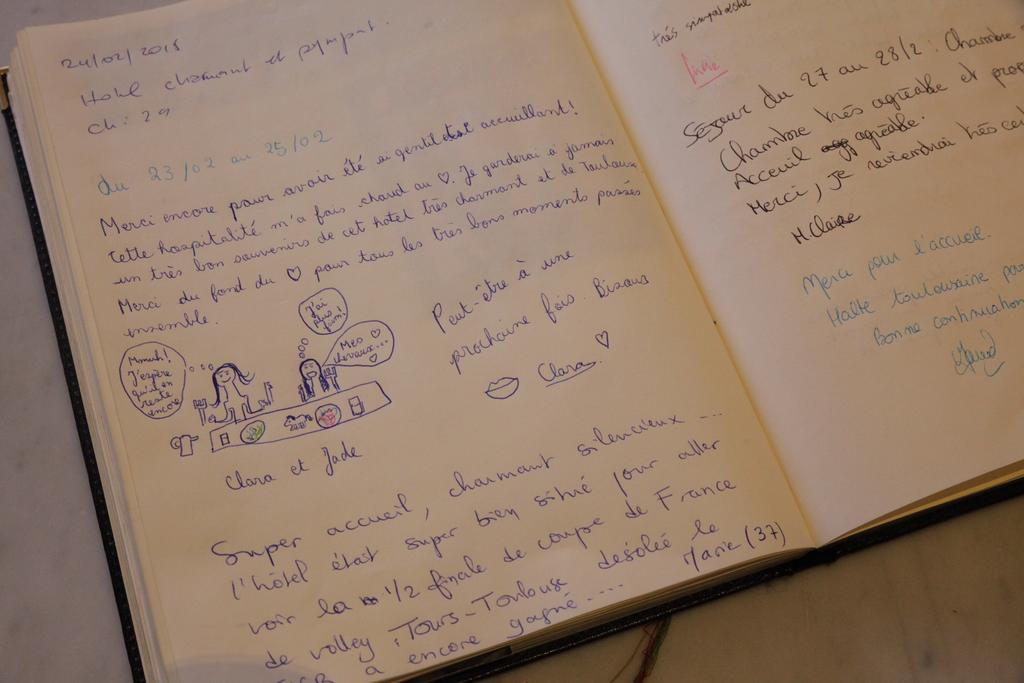 24/02/2018
Hotel charmant et sympat.
ch: 29
Du 23/02 au 25/02
Merci encore pour avoir été si gentil et accueillant!
Cette hospitalité m'a fais chaud au ♡. Je garderai à jamais
un très bon souvenirs de cet hotel très charmant et de Toulouse
Merci du fond du ♡ pour tous les très bons moments passés
ensemble.
Mmmh!
J'espère
qu'il en
reste
encore
J'ai
plus
faim!
Mes ♡
chevaux...
♡
Clara et Jade
Peut-être à une
prochaine fois. Bisous
Clara ♡
Super accueil, charmant silencieux ...
l'hôtel était super bien situé pour aller
voir la 1/2 finale de coupe de France
de volley : Tours-Toulouse désolée le
a encore gagné.... Marie (37)
très sympathique
Séjour du 27 au 28/2 : Chambre
Chambre très agréable et
Acceuil agréable.
Merci, je reviendrai très
M Claire
Merci pour l'accueil.
Halte toulousaine
Bonne continuation